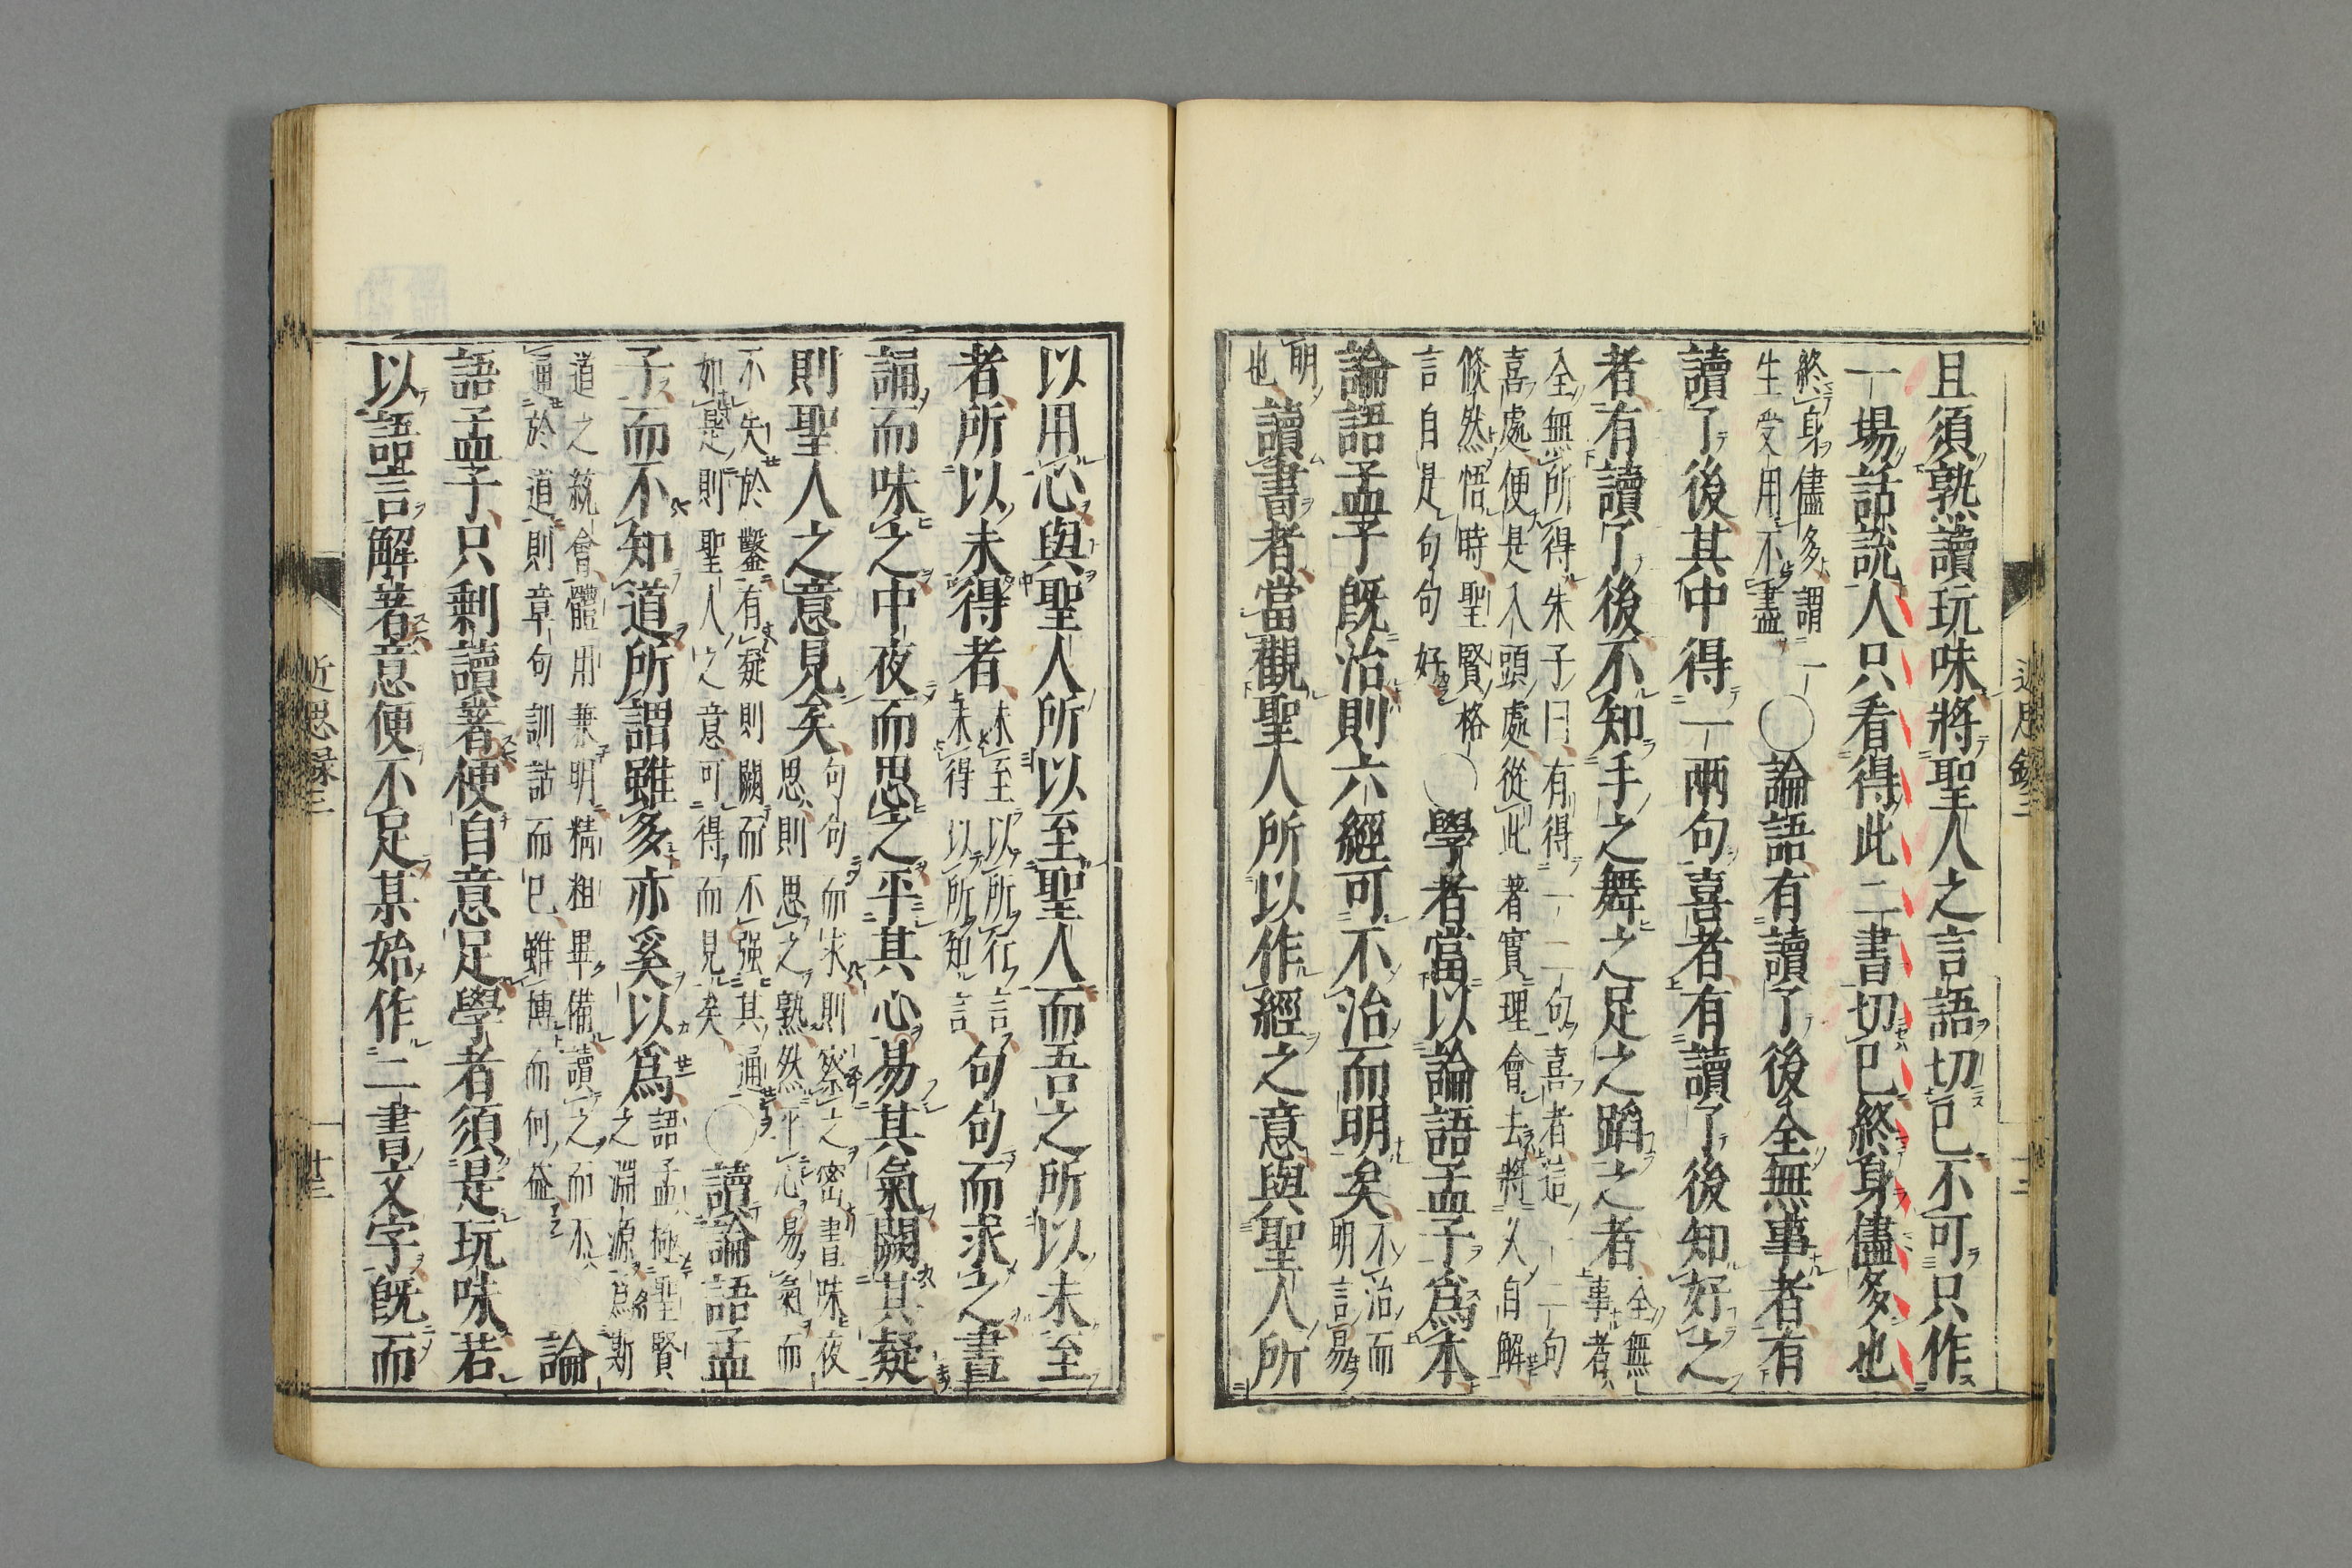 且須熟讀玩味將聖人之言語切已不可只作
一場話說人只看得此二書切已終身儘多也
終身儘多謂一
生受用不盡
○論語有讀了後全無事者有
讀了後其中得一兩句喜者有讀了後知好之
者有讀了後不知手之舞之足之蹈之者
全無
事者
全無所得朱子曰有得一二句喜者這一二句
喜處便是入頭處從此著實理會去將久自解
倐然悟時聖賢格
言自是句句好
○學者當以論語孟子爲本
論語孟子旣治則六經可不治而明矣
不治而
明言易
明
也
讀書者當觀聖人所以作經之意與聖人所
近思錄三
以用心與聖人所以至聖人而吾之所以未至
者所以未得者
未至以所行言
未得以所知言
句句而求之晝
誦而味之中夜而思之平其心易其氣闕其疑
則聖人之意見矣
句句而求則察之密晝味夜
思則思之熟然平心易氣而
不失於鑿有疑則闕而不强其通
如是則聖人之意可得而見矣
○讀論語孟
子而不知道所謂雖多亦奚以爲
語孟極聖賢
之淵源爲斯
道之統會體用兼明精粗畢備讀之而不
通於道則章句訓詁而已雖博而何益
論
語孟子只剩讀著便自意足學者須是玩味若
以語言解著意便不足某始作二書文字旣而
近思錄三
十三